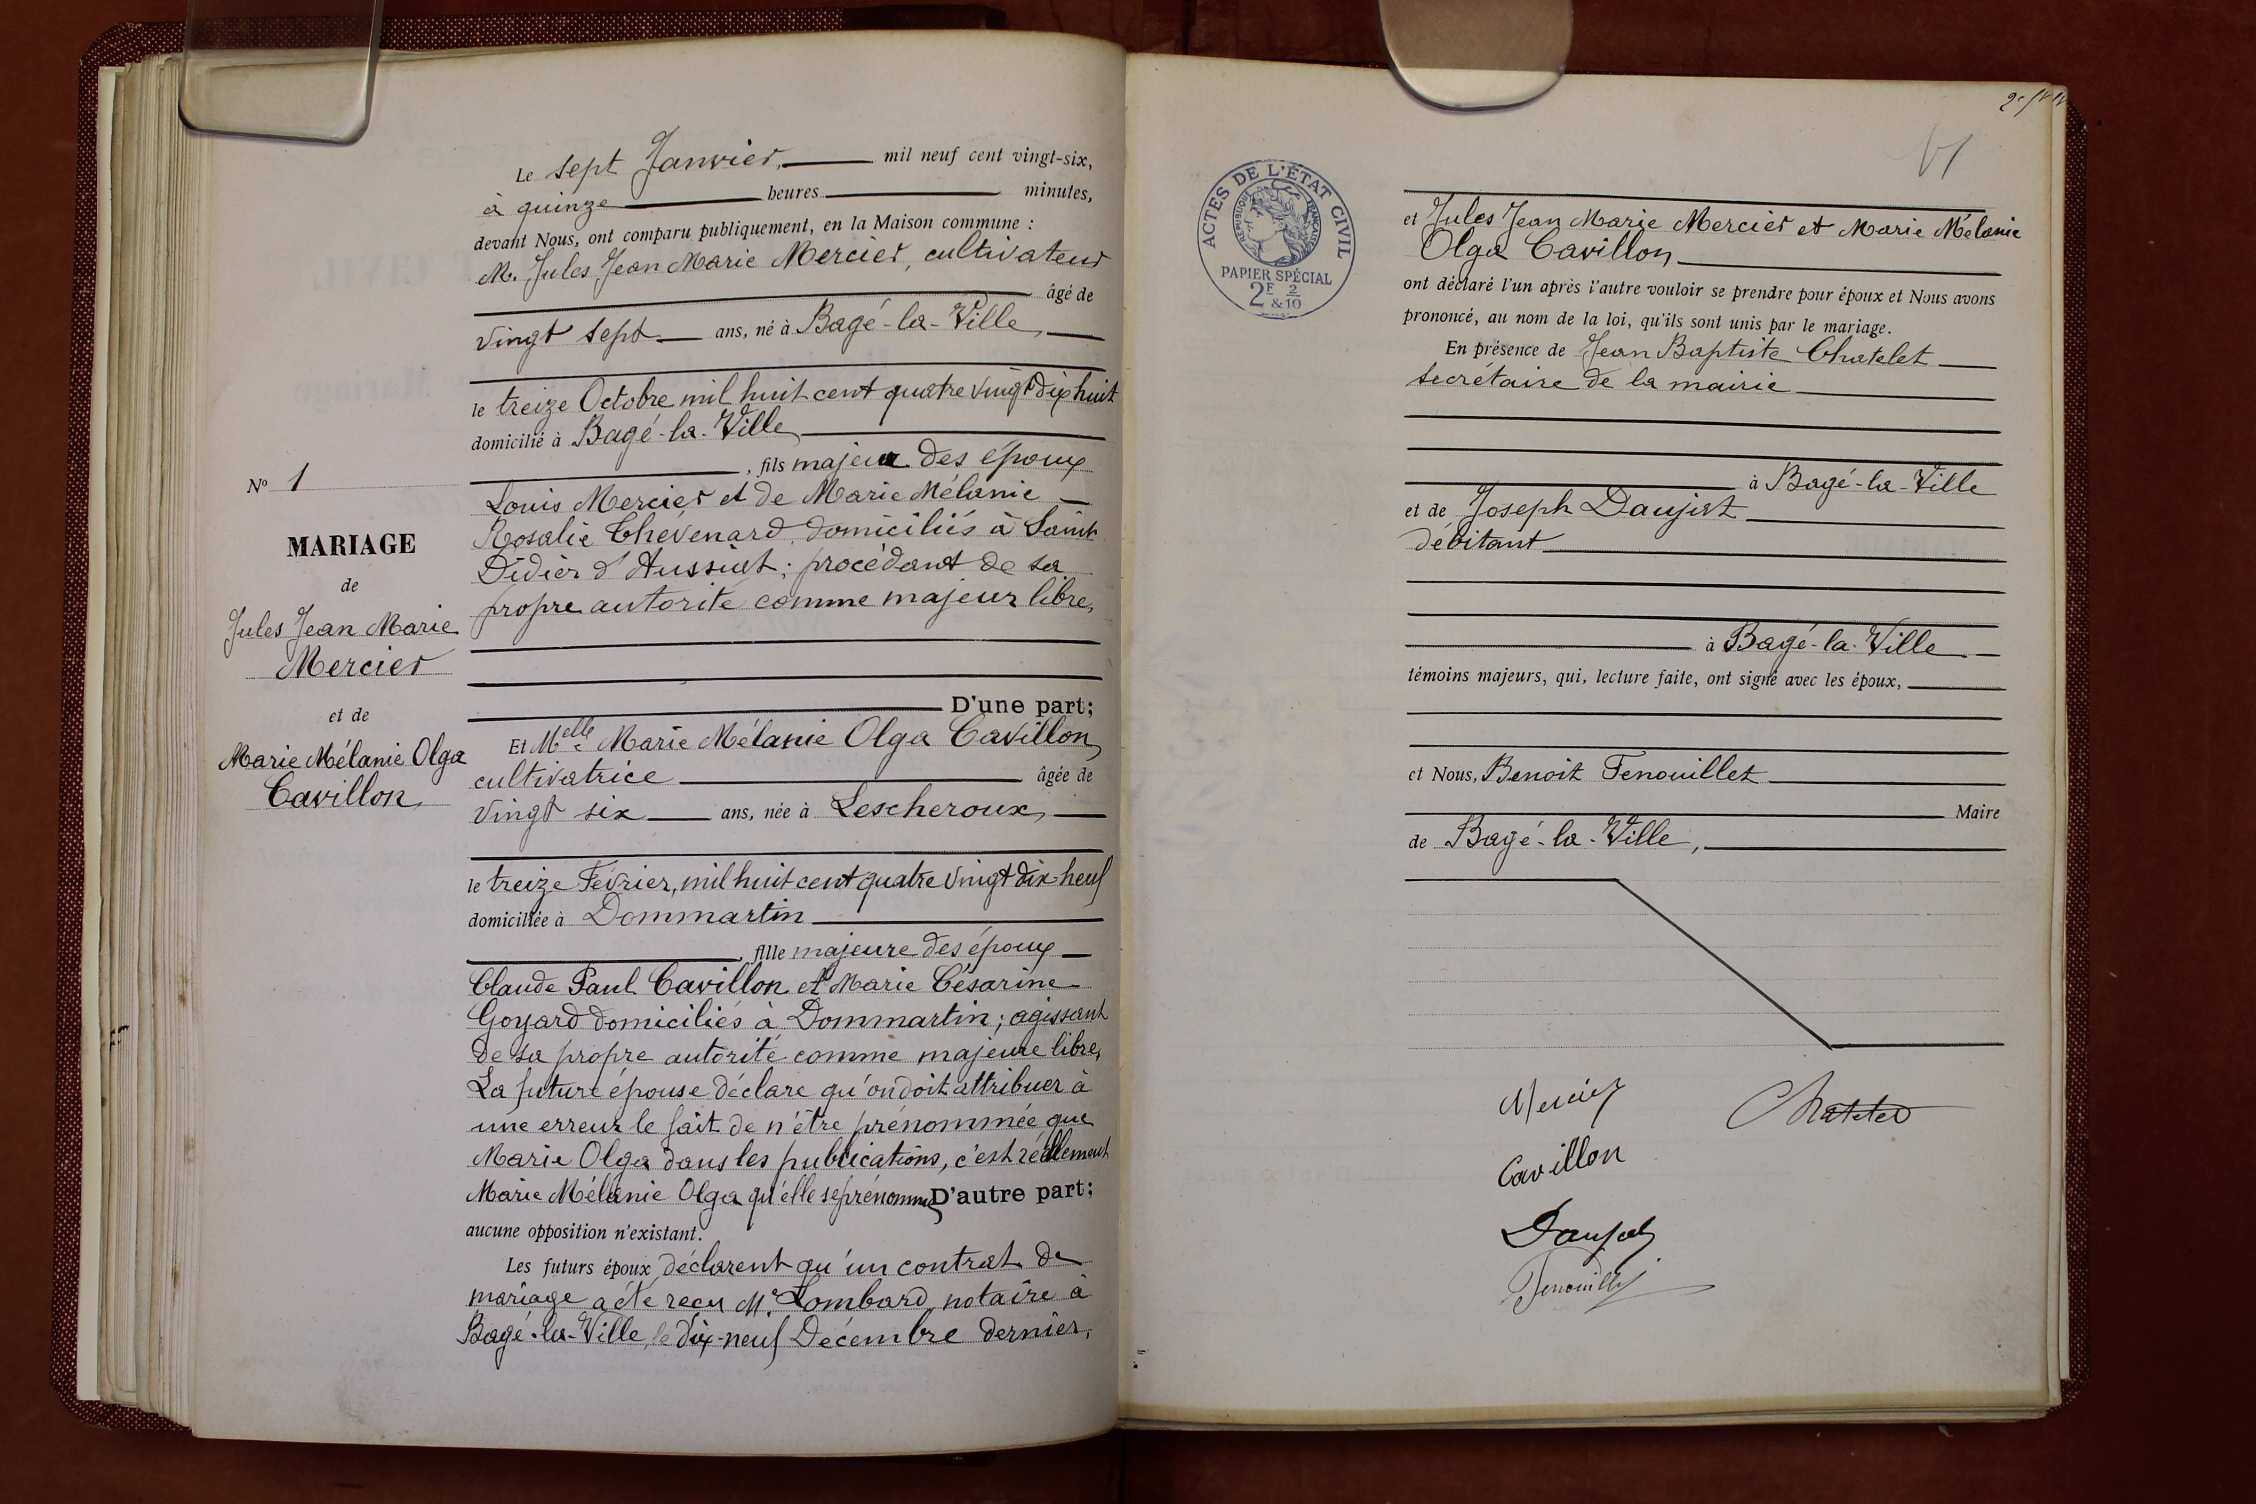 Le sept Janvier, mil neuf cent vingt-six,
à quinze heures minutes,
devant Nous, ont comparu publiquement, en la Maison commune :
M. Jules Jean Marie Mercier, cultivateur
âgé de
vingt sept ans, né à Bagé-la-Ville,
le treize Octobre mil huit cent quatre vingt dix huit
domicilié à Bagé-la-Ville
, fils majeur des époux
Louis Mercier et de Marie Mélanie
Rosalie Chevenard, domiciliés à Saint
Didier d'Aussiat ; procédant de sa
propre autorité comme majeur libre,
D'une part;
Et Melle Marie Mélanie Olga Cavillon,
cultivatrice âgée de
vingt six ans, née à Lescheroux,
le treize Février, mil huit cent quatre vingt dix-neuf
domiciliée à Dommartin
, fille majeure des époux
Claude Paul Cavillon et Marie Césarine
Goyard domiciliés à Dommartin ; agissant
de sa propre autorité comme majeure libre,
La future épouse déclare qu'on doit attribuer à
une erreur le fait de n'être prénommée que
Marie Olga dans les publications, c'est réellement
Marie Mélanie Olga qu'elle se prénomme, D'autre part;
aucune opposition n'existant.
Les futurs époux déclarent qu'un contrat de
mariage a été reçu Me Lombard, notaire à
Bagé-la-Ville, le dix-neuf Décembre dernier,
No 1
MARIAGE
de
Jules Jean Marie
Mercier
et de
Marie Mélanie Olga
Cavillon
ACTES DE L'ÉTAT CIVIL
RÉPUBLIQUE FRANÇAISE
PAPIER SPÉCIAL
2F 2
& 10
et Jules Jean Marie Mercier et Marie Mélanie
Olga Cavillon
ont déclaré l'un après l'autre vouloir se prendre pour époux et Nous avons
prononcé, au nom de la loi, qu'ils sont unis par le mariage.
En présence de Jean Baptiste Chatelet
secrétaire de la mairie
à Bagé-la-Ville
et de Joseph Daujat
débitant
à Bagé-la-Ville
témoins majeurs, qui, lecture faite, ont signé avec les époux,
et Nous, Benoit Fenouillet
Maire
de Bagé-la-Ville,
Mercier
Chatelet
Cavillon
Daujat
Fenouillet